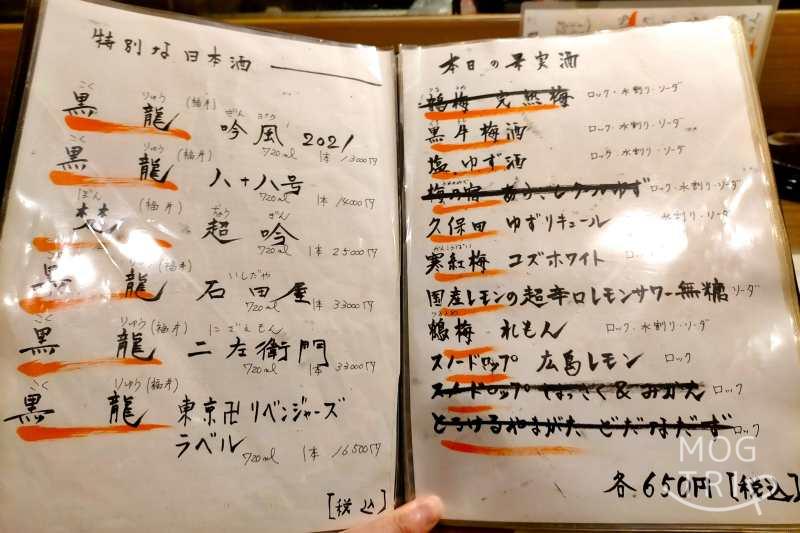 特別な日本酒
黒龍 (福井) 吟風 2021
こく りゅう ぎん
720ml 1本 13000円
黒龍 (福井) 八十八号
こく りゅう
720ml 1本 14000円
梵 (福井) 超吟
ぼん ちょう ぎん
720ml 1本 25000円
黒龍 (福井) 石田屋
りゅう いしだや
720ml 1本 33000円
黒龍 (福井) 二左衛門
こく りゅう にざえもん
720ml 1本 33000円
黒龍 (福井) 東京卍リベンジャーズ
こく りゅう
ラベル 720ml 1本 16500円
[税込]
本日の果実酒
鶴梅 完熟梅 ロック・水割り・ソーダ
黒牛梅酒 ロック・水割り・ソーダ
塩ゆず酒 ロック・水割り・ソーダ
梅乃宿 ロック・水割り・ソーダ
久保田 ゆずリキュール 水割り・ソーダ
寒紅梅 コズホワイト ロック
国産レモンの超辛口レモンサワー無糖 ソーダ
鶴梅 れもん ロック・水割り・ソーダ
スノードロップ 広島レモン ロック
スノードロップ はっさく&みかん ロック
とろけるやまがた ロック
各650円[税込]
MOG
TRIP